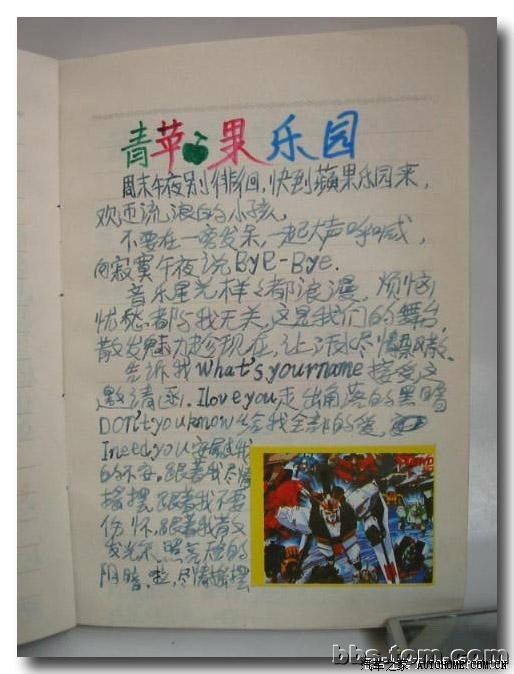 青苹果乐园
周末午夜别徘徊,快到蘋果乐园来,
欢迎流浪的小孩,
不要在一旁发呆,一起大声呼喊,
向寂寞午夜说Bye-Bye.
音乐星光样样都浪漫,烦恼
忧愁都与我无关,这是我们的舞台,
散发魅力趁现在,让汗水尽情
告诉我what's your name 接受这
邀请函.I love you走出角落的黑暗
DON't you know 给我全部的爱,
I need you 安慰我
的不安.跟着我尽情
摇摆.跟着我不要
伤怀.跟着我散
发光 照亮你的
阴暗. 尽情摇摆
bbs.tom.com
汽车之家 AUTOHOME.COM.CN